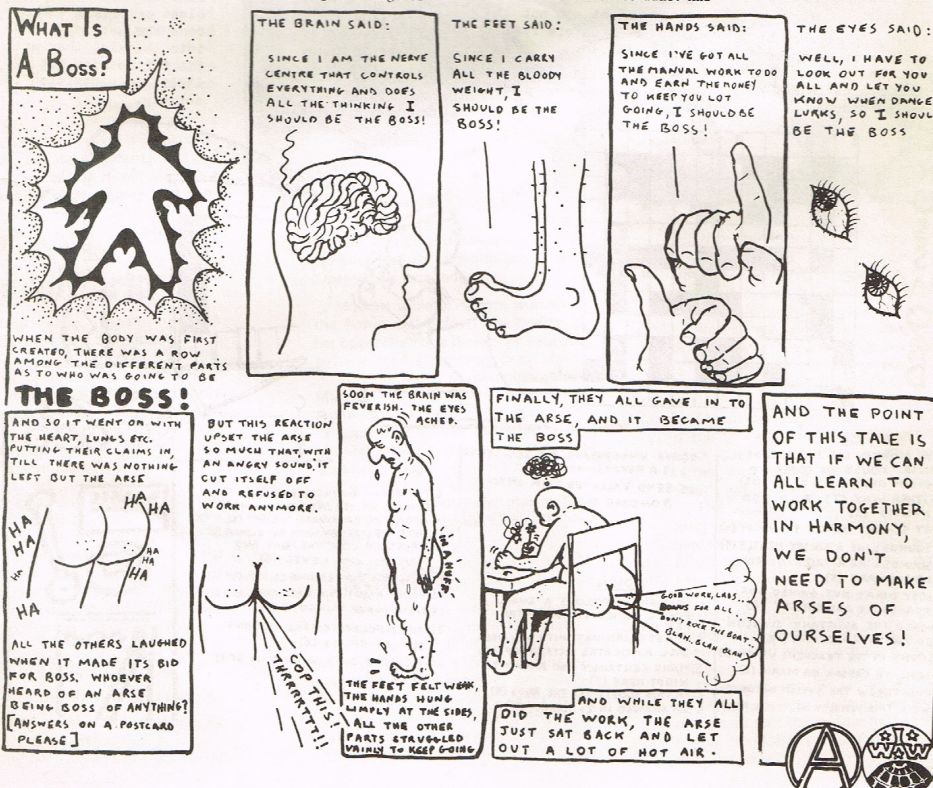 WHAT IS
A BOSS?
WHEN THE BODY WAS FIRST
CREATED, THERE WAS A ROW
AMONG THE DIFFERENT PARTS
AS TO WHO WAS GOING TO BE
THE BOSS!
THE BRAIN SAID:
SINCE I AM THE NERVE
CENTRE THAT CONTROLS
EVERYTHING AND DOES
ALL THE THINKING I
SHOULD BE THE BOSS!
THE FEET SAID:
SINCE I CARRY
ALL THE BLOODY
WEIGHT, I
SHOULD BE THE
BOSS!
THE HANDS SAID:
SINCE I'VE GOT ALL
THE MANUAL WORK TO DO
AND EARN THE MONEY
TO KEEP YOU LOT
GOING, I SHOULD BE
THE BOSS!
THE EYES SAID:
WELL, I HAVE TO
LOOK OUT FOR YOU
ALL AND LET YOU
KNOW WHEN DANGE
LURKS, SO I SHOUL
BE THE BOSS
AND SO IT WENT ON WITH
THE HEART, LUNGS ETC.
PUTTING THEIR CLAIMS IN,
TILL THERE WAS NOTHING
LEFT BUT THE ARSE
HA
HA
HA
HA
HA
HA
HA
HA
HA
ALL THE OTHERS LAUGHED
WHEN IT MADE ITS BID
FOR BOSS. WHOEVER
HEARD OF AN ARSE
BEING BOSS OF ANYTHING?
[ANSWERS ON A POSTCARD
PLEASE]
BUT THIS REACTION
UPSET THE ARSE
SO MUCH THAT, WITH
AN ANGRY SOUND, IT
CUT ITSELF OFF
AND REFUSED TO
WORK ANYMORE.
COP THIS!
THRRRRTT!!
SOON THE BRAIN WAS
FEVERISH. THE EYES
ACHED.
IN A HUFF
THE FEET FELT WEAK,
THE HANDS HUNG
LIMPLY AT THE SIDES,
ALL THE OTHER
PARTS STRUGGLED
VAINLY TO KEEP GOING
FINALLY, THEY ALL GAVE IN TO
THE ARSE, AND IT BECAME
THE BOSS
GOOD WORK, LADS..
BONUS FOR ALL
DON'T ROCK THE BOAT
BLAH, BLAH BLAH
AND WHILE THEY ALL
DID THE WORK, THE ARSE
JUST SAT BACK AND LET
OUT A LOT OF HOT AIR.
AND THE POINT
OF THIS TALE IS
THAT IF WE CAN
ALL LEARN TO
WORK TOGETHER
IN HARMONY,
WE DON'T
NEED TO MAKE
ARSES OF
OURSELVES!
A
IWW